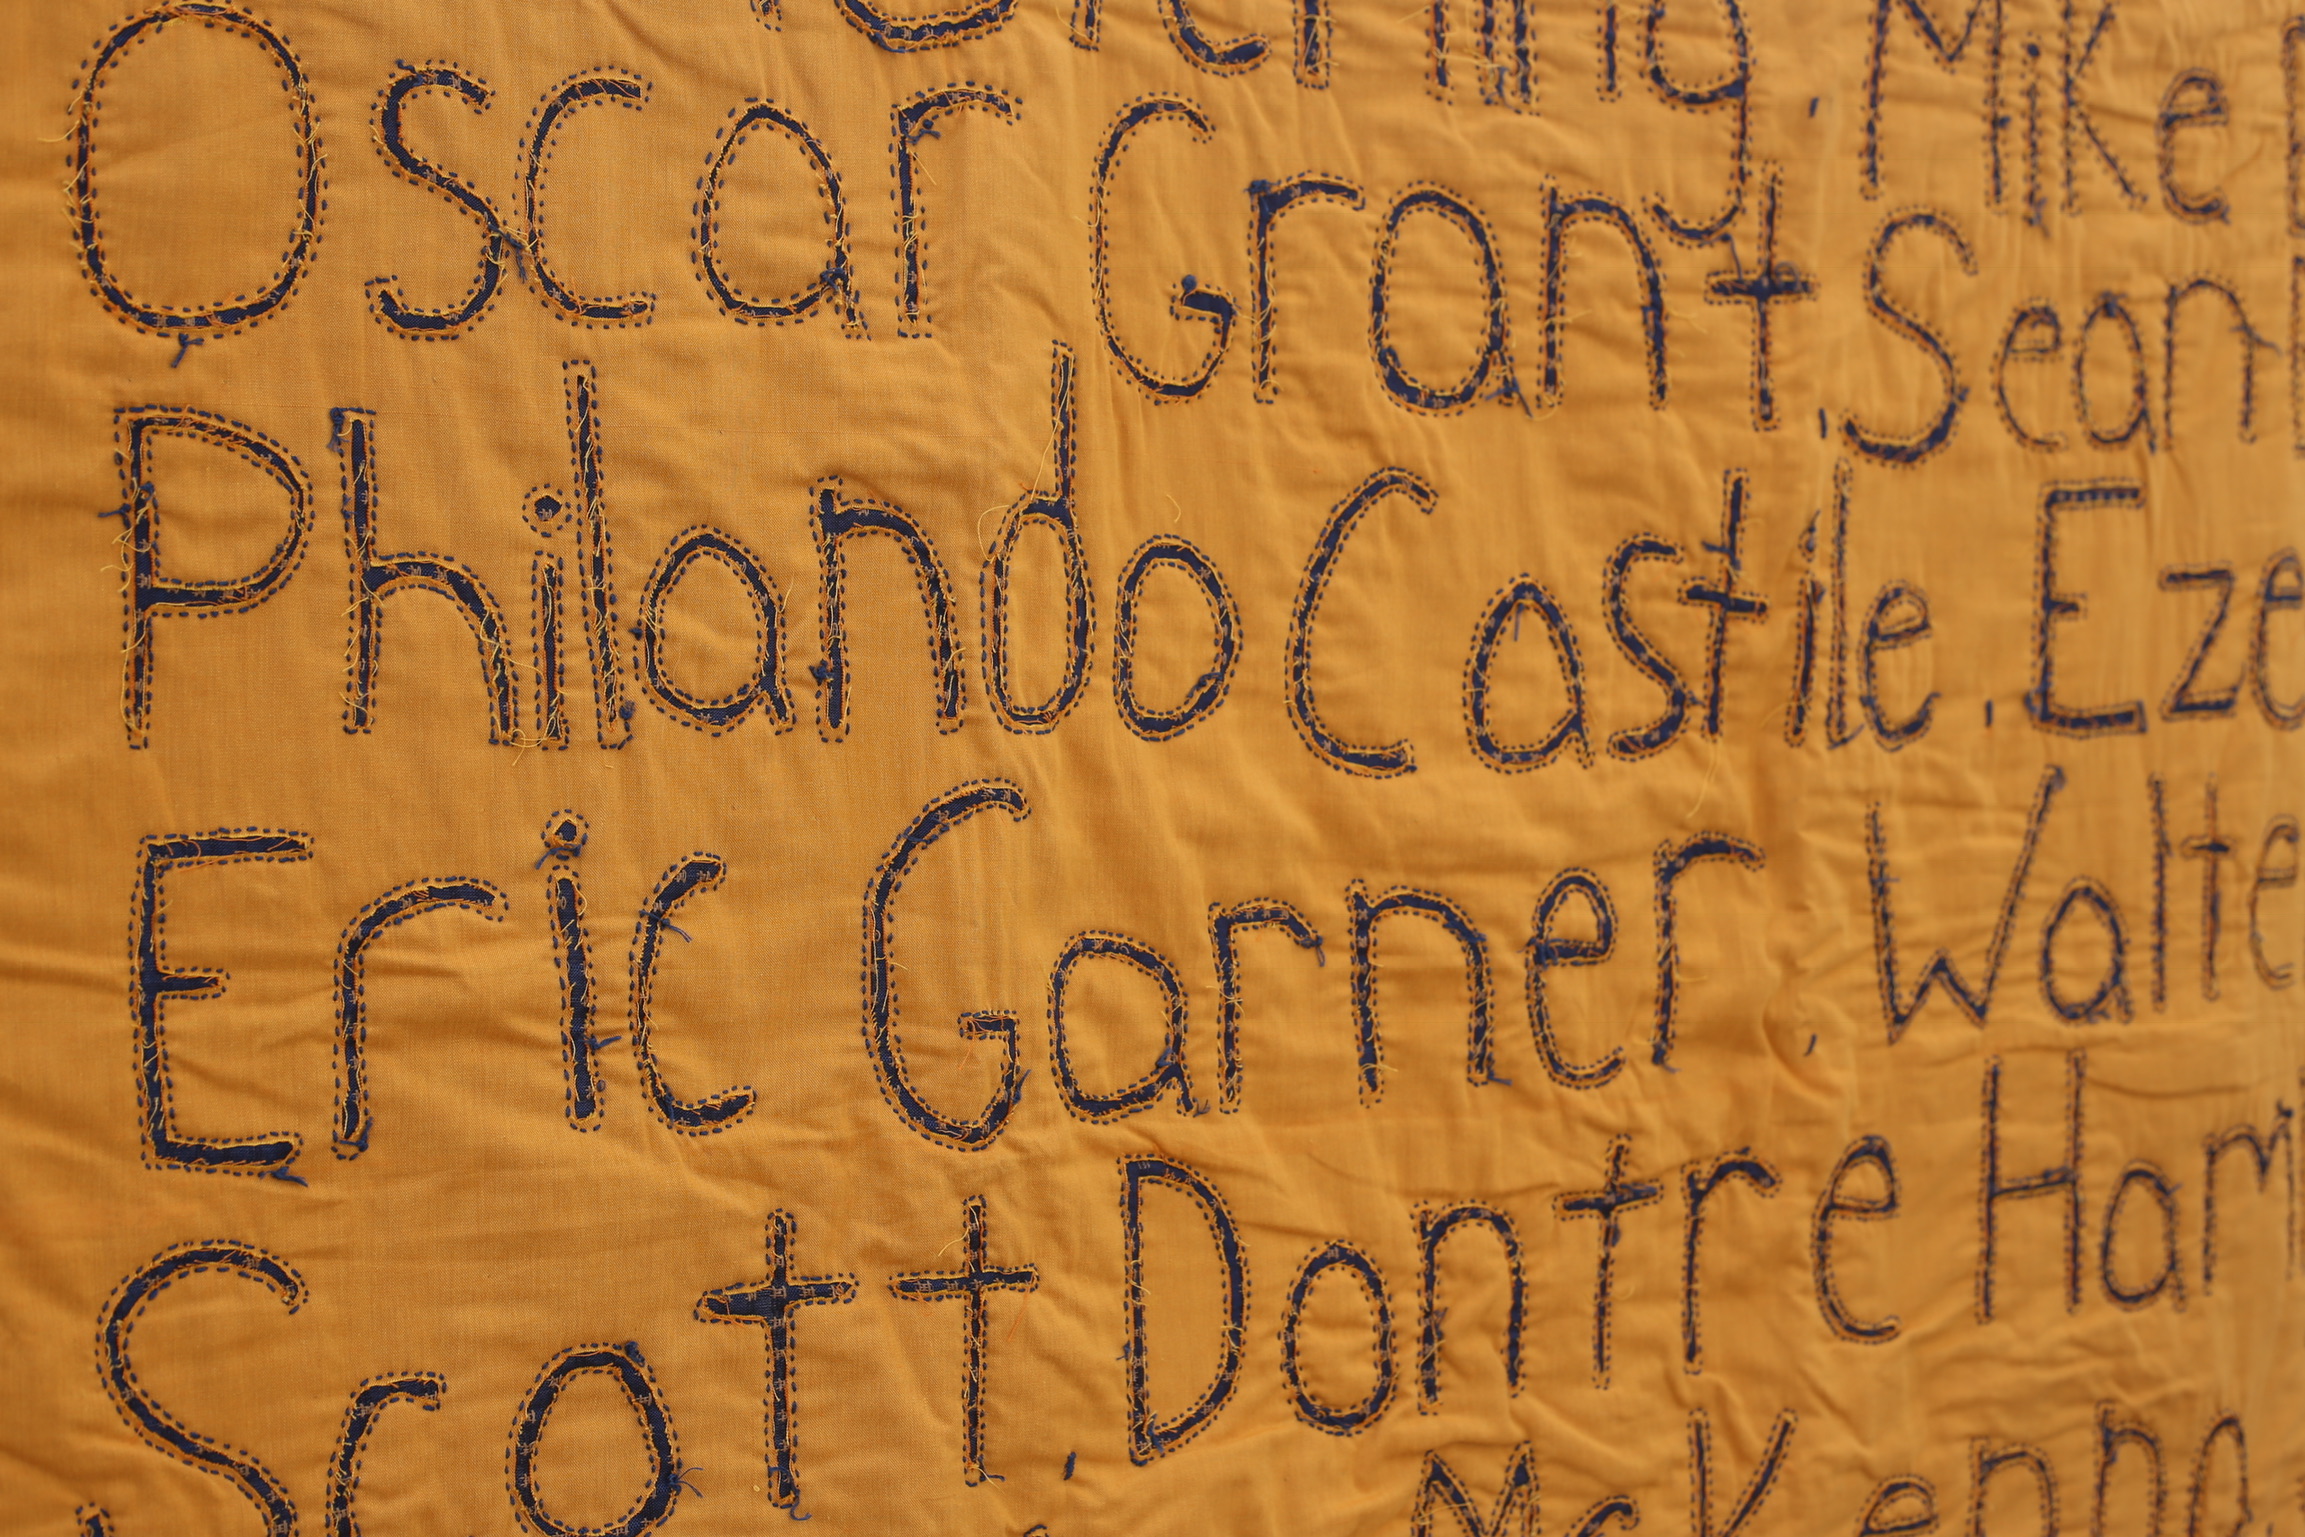 Mike
Oscar Grant, Sean
Philando Castile, Eze
Eric Garner, Walte
Scott, Dontre Ham
McKenna